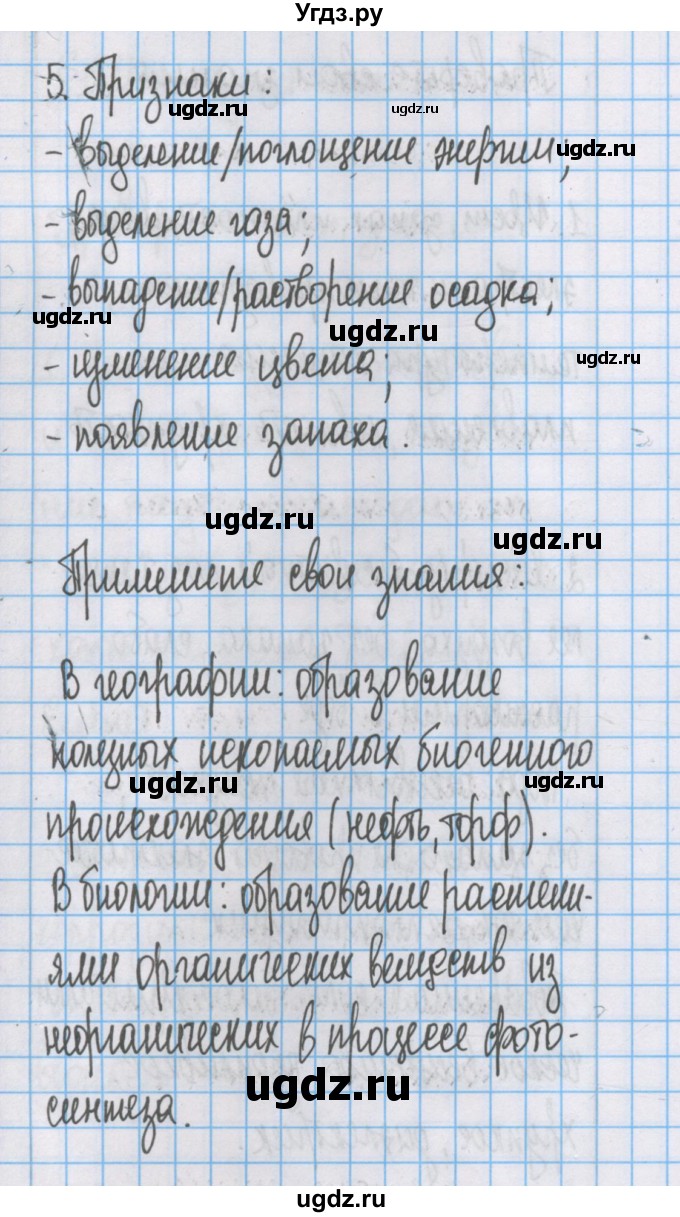 Угдз.ру
5. Признаки:
ugdz.ru
ugdz.ru
- выделение/поглощение энергии;
ugdz.ru
- выделение газа;
- выпадение/растворение осадка;
ugdz.ru
ugdz.ru
- изменение цвета;
ugdz.ru
- появление запаха.
ugdz.ru
ugdz.ru
Примените свои знания:
В географии: образование
полезных ископаемых биогенного
ugdz.ru
ugdz.ru
происхождения (нефть, торф).
В биологии: образование растени-
ями органических веществ из
неорганических в процессе фото-
ugdz.ru
синтеза.
ugdz.ru